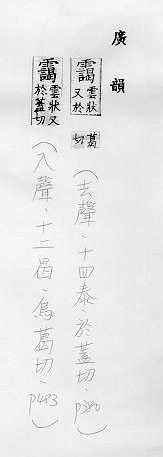 廣韻
靄雲狀又於葛切
（去聲．十四泰．於蓋切．p380）
靄雲狀又於蓋切
（入聲．十二曷．烏葛切．p483）